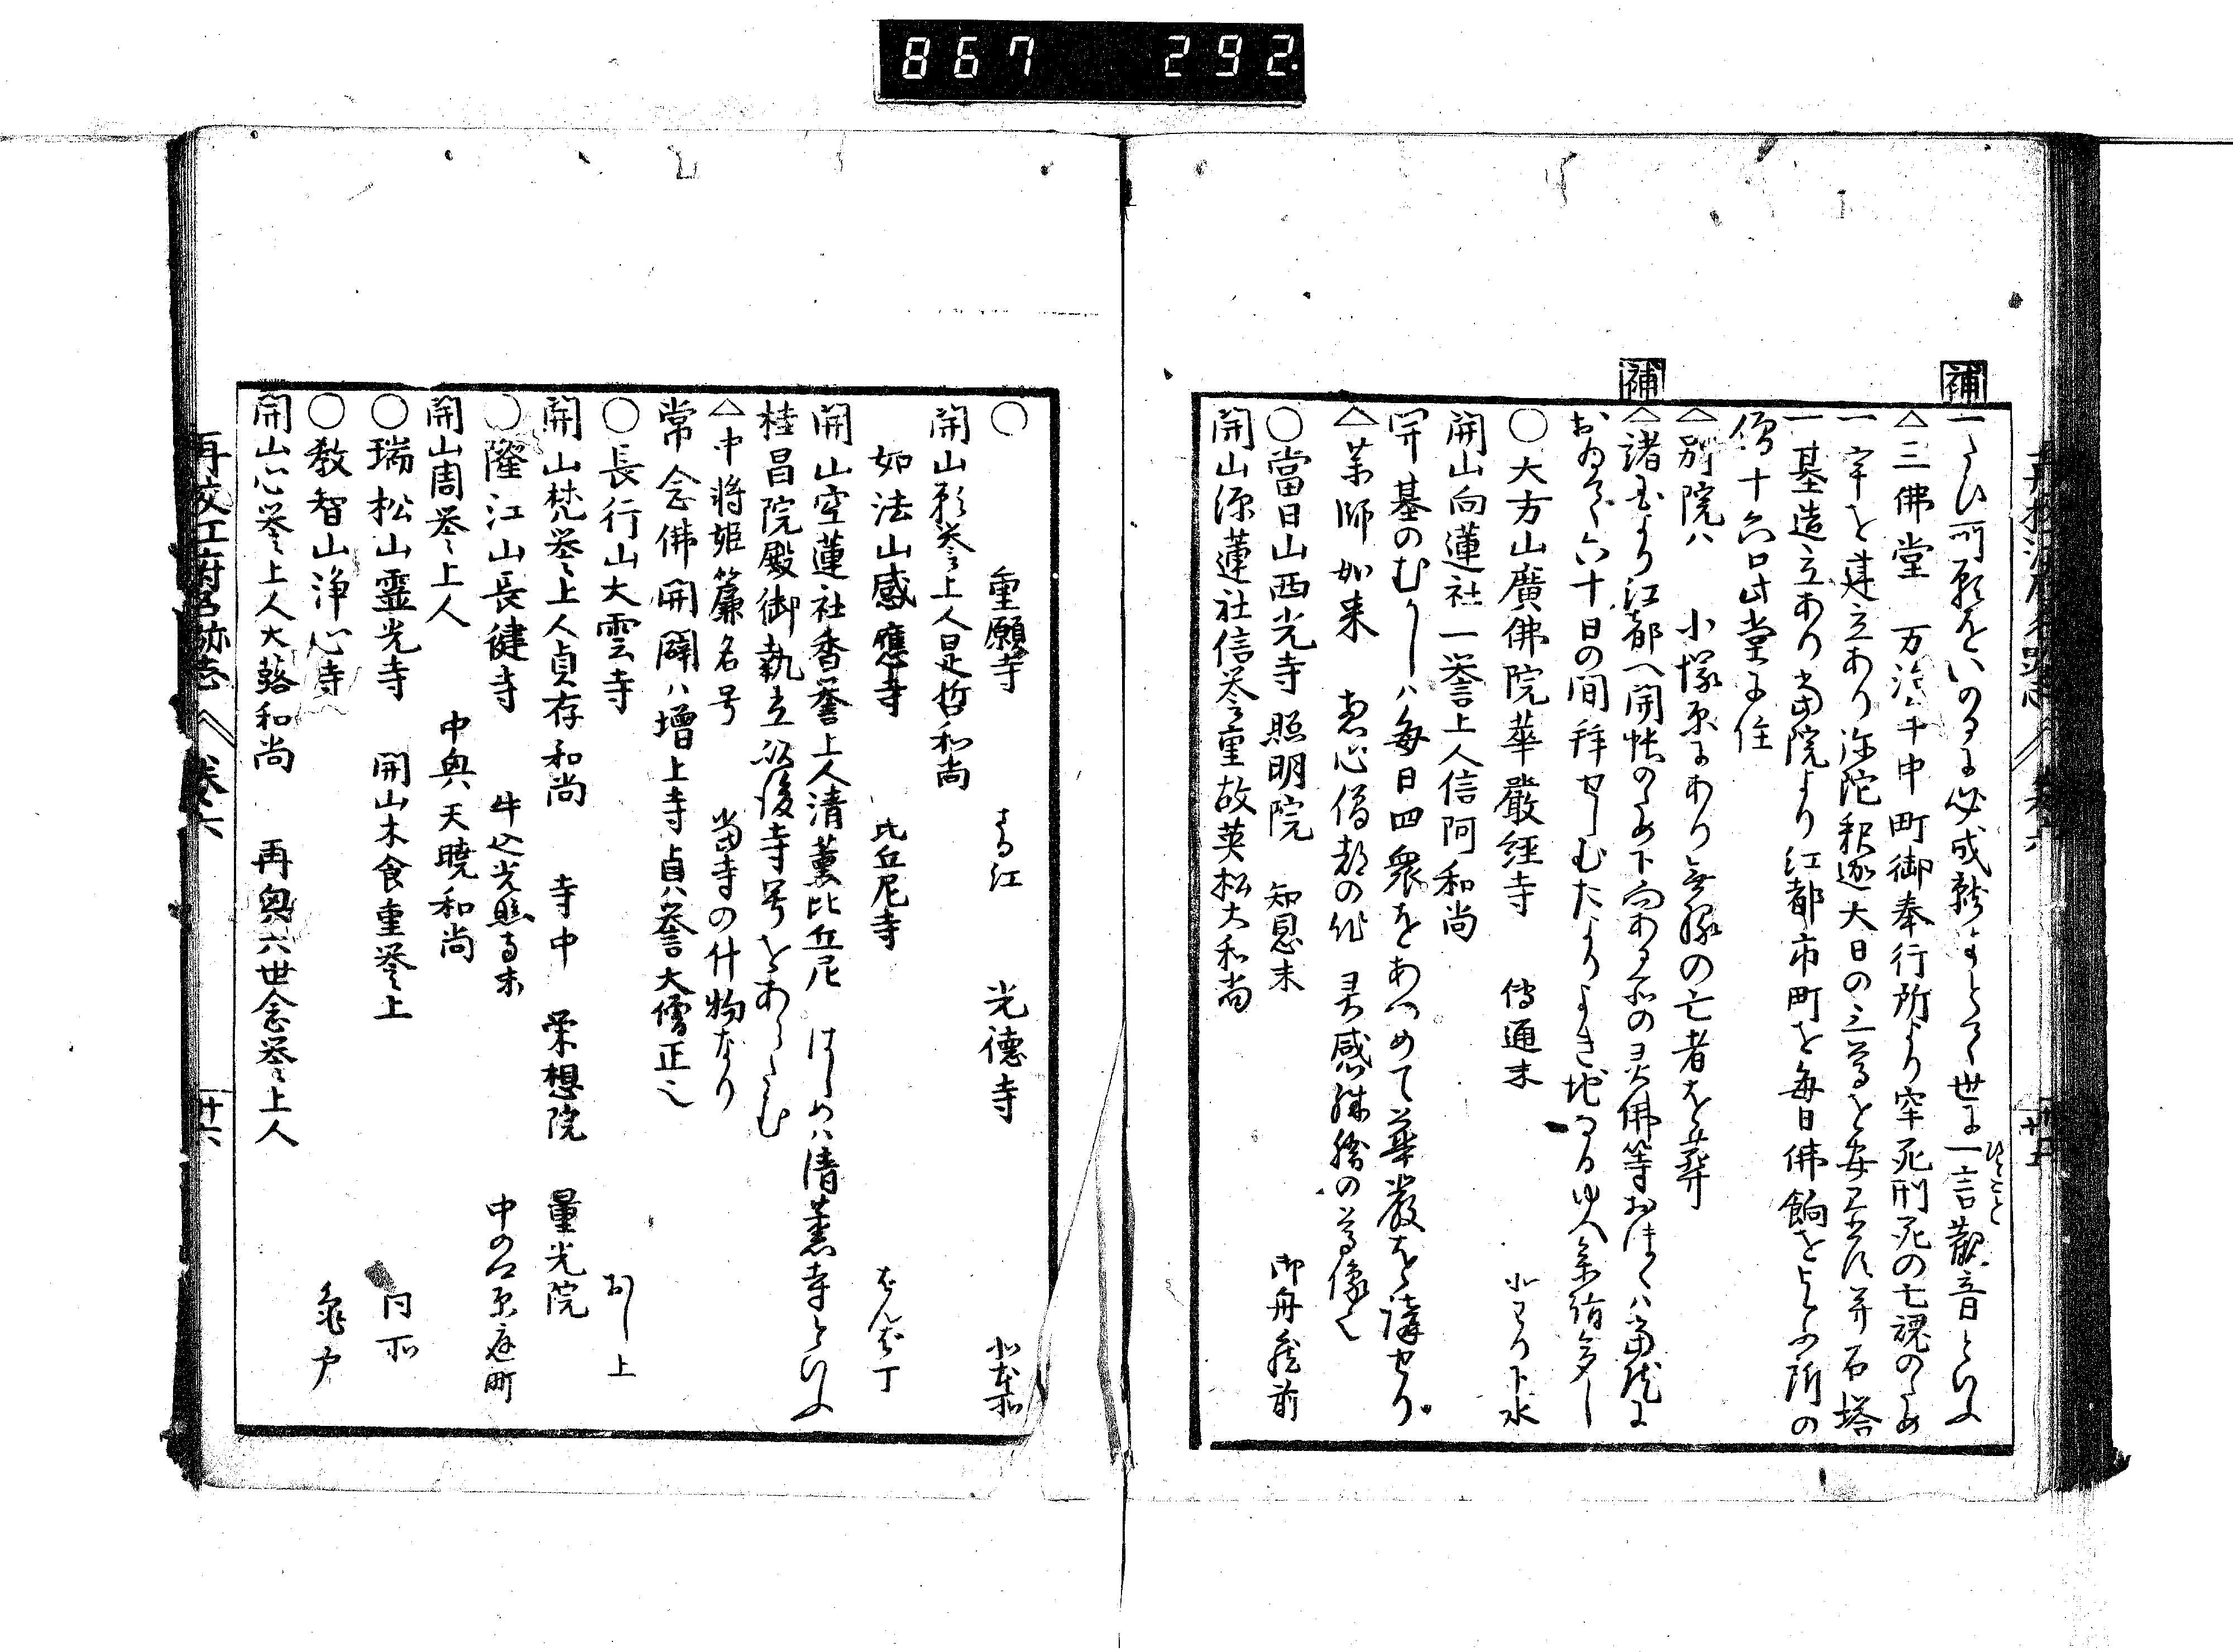 867 292
補
一たひ所願をいのるに必成就すとて世に一言観音といふ
ひとこと
△三佛堂 万治年中町御奉行所より牢死刑死の亡魂のため
一宇を建立あり弥陀釈迦大日の三尊を安置す并石塔
一基造立あり当院より江都市町を毎日佛餉をとふ所の
僧十六口此堂に住
△別院ハ 小塚原にあり無縁の亡者を葬
補
△諸国より江都へ開帳のため下向ある所の灵佛等おほくハ当院に
おゐて六十日の間拝せしむたよりよき地なるゆへ参詣多し
○大方山廣佛院華嚴經寺 傳通末 小石川下水
開山向蓮社一誉上人信阿和尚
開基のむかしハ毎日四衆をあつめて華嚴を講せり
△薬師如来 恵心僧都の作 灵感殊勝の尊像也
○當日山西光寺 照明院 知恩末 御舟蔵前
開山源蓮社信誉重故英松大和尚
再校江府名跡志 巻六
廿五
○ 重願寺 光徳寺
開山上人是哲和尚
如法山感應寺 比丘尼寺
開山空蓮社香誉上人清薫比丘尼 はしめハ清薫寺といふ
桂昌院殿御執立以後寺号をあらたむ
△中将姫簾名号 當寺の什物なり
常念佛開闢ハ増上寺貞誉大僧正也
○長行山大雲寺 おし上
開山梵誉上人貞存和尚 寺中 栄想院 量光院
○隆江山長健寺 牛込光照寺末
開山周誉上人 中興天暁和尚
○瑞松山靈光寺 開山木食重誉上 同所
○教智山浄心寺 亀戸
開山心誉上人大路和尚 再興六世念誉上人
再校江府名跡志 巻六
廿六